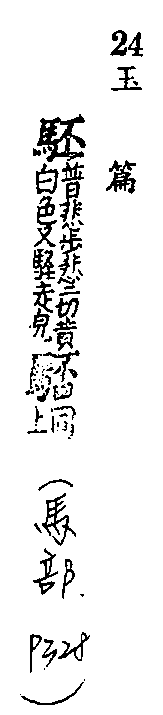 24
玉篇
駓
普悲步悲二切黄
白色又駓走皃
同上
(馬部. P328)